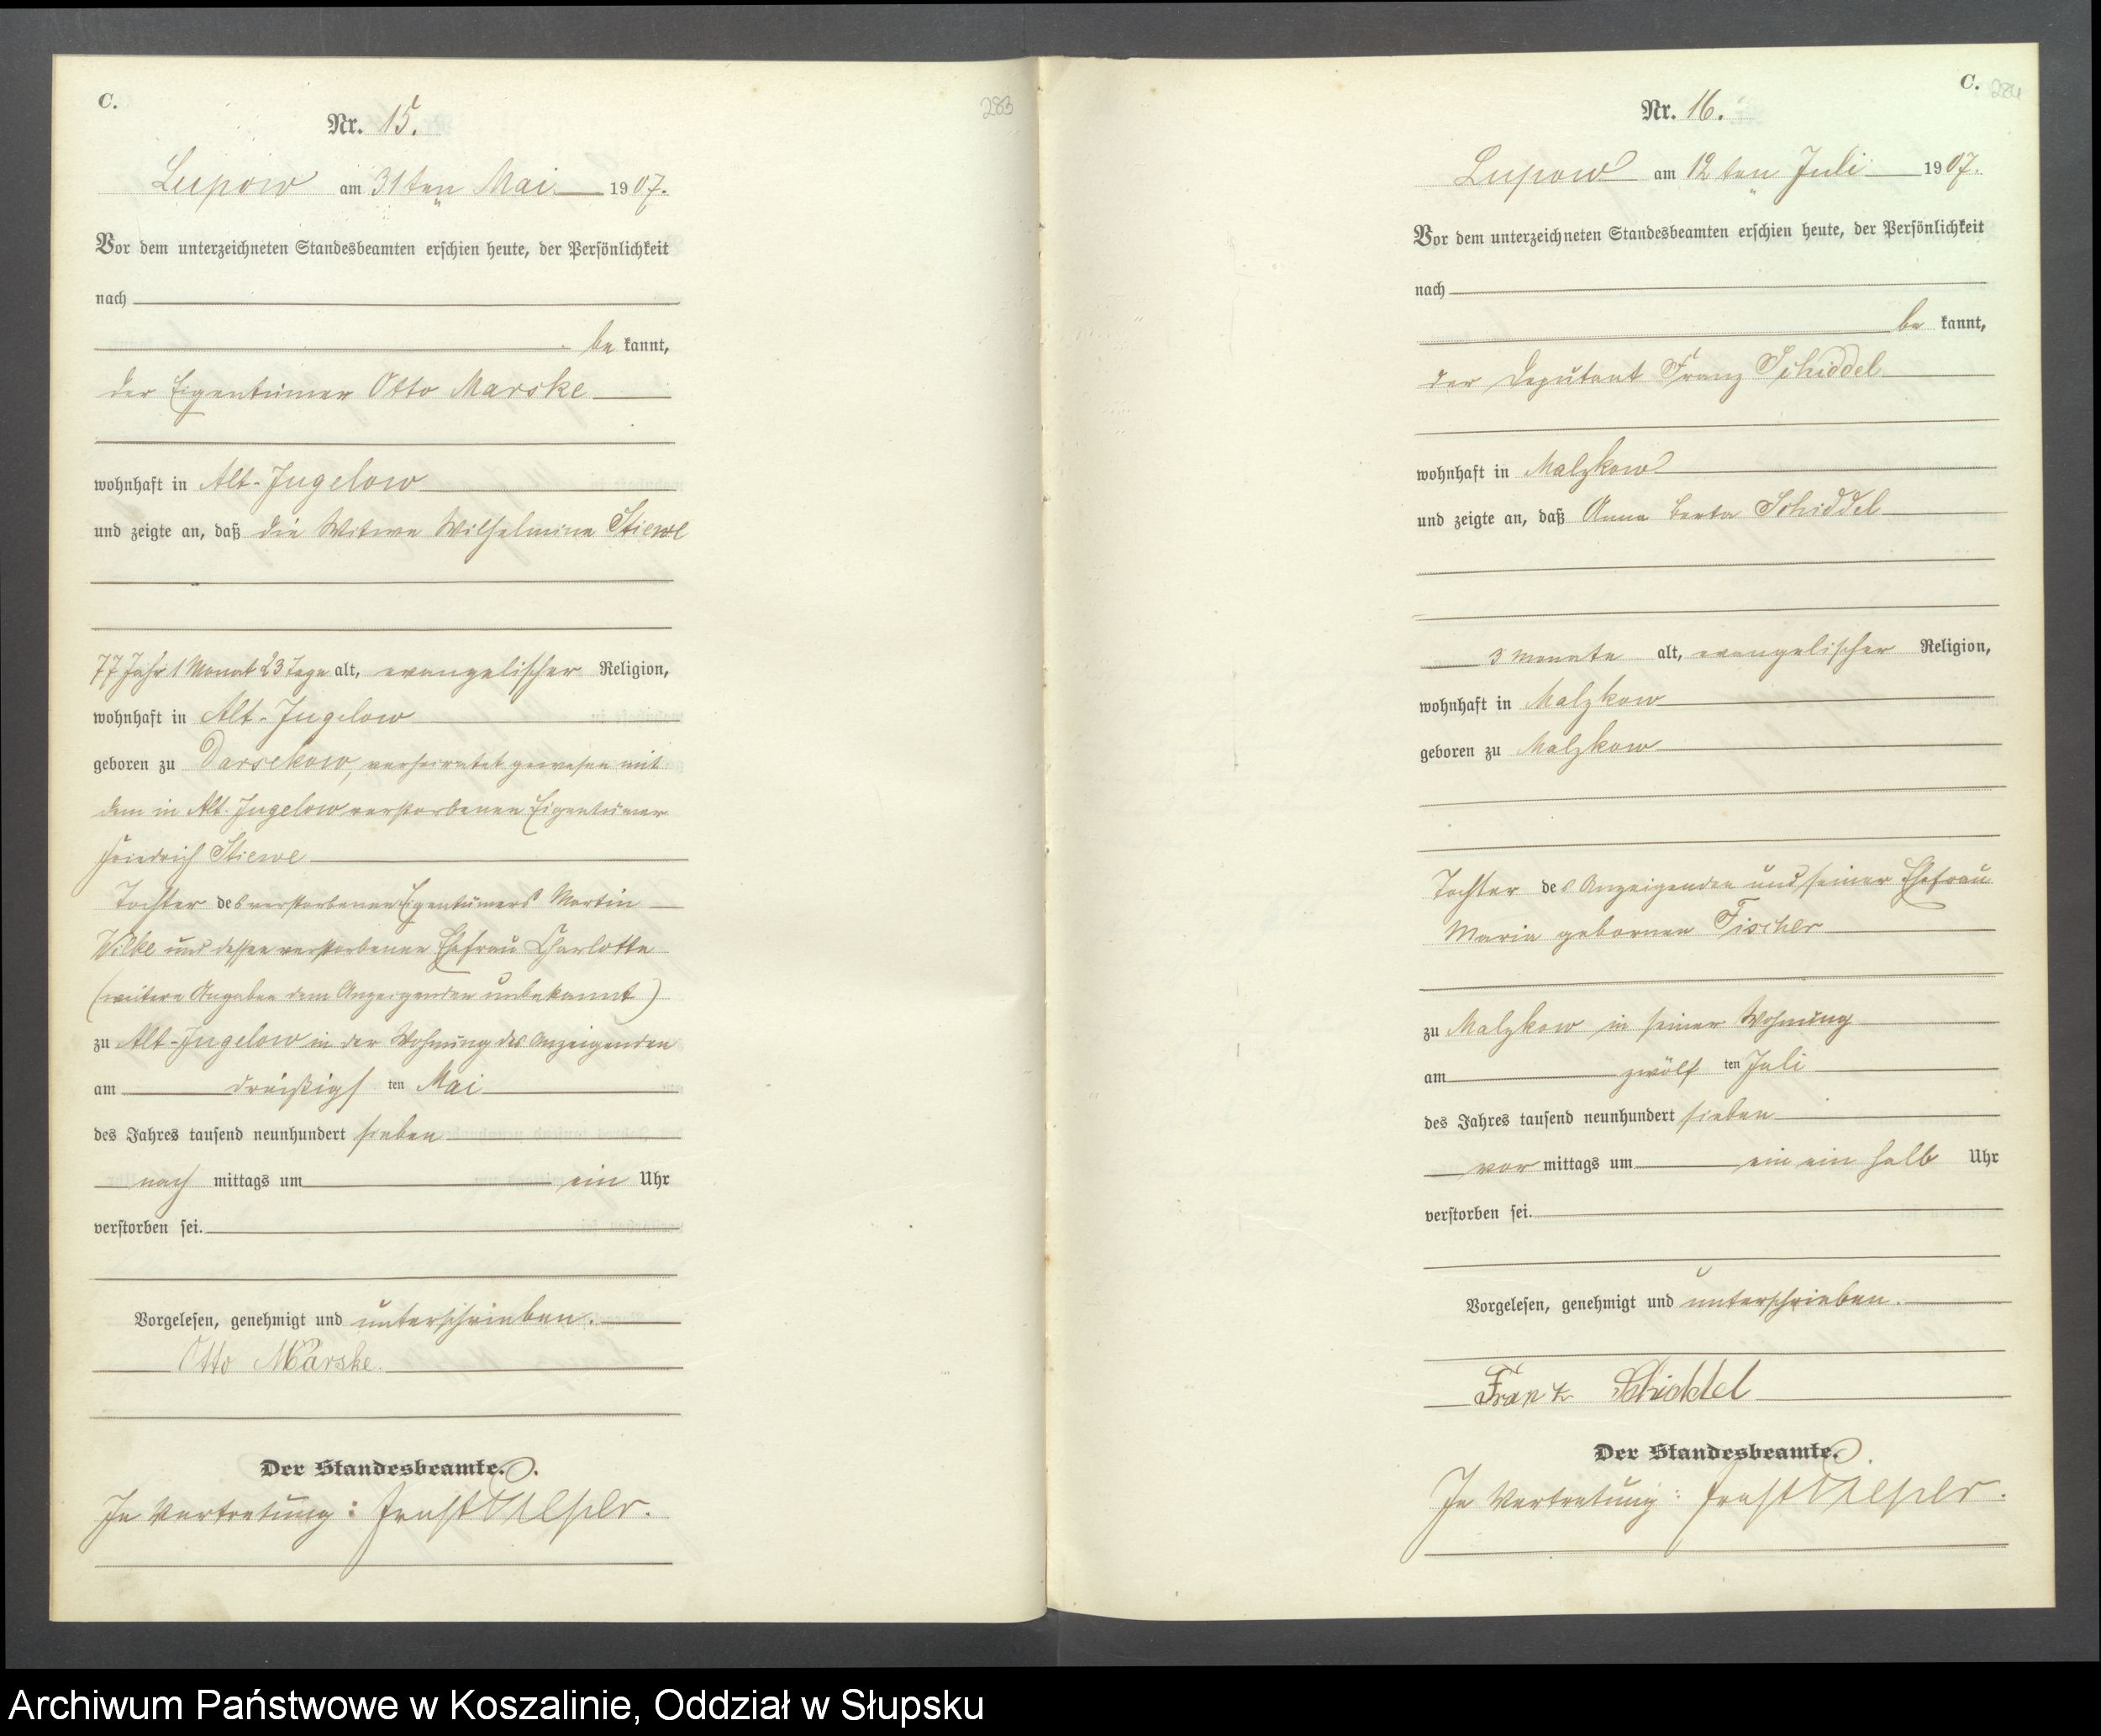 C.
283
Nr. 15.
Lupow am 31ten Mai 1907.
Vor dem unterzeichneten Standesbeamten erschien heute, der Persönlichkeit
nach
be kannt,
der Eigentümer Otto Marske
wohnhaft in Alt-Jugelow
und zeigte an, daß die Witwe Wilhelmine Stiewe
77 Jahr 1 Monat 23 Tage alt, evangelischer Religion,
wohnhaft in Alt-Jugelow
geboren zu Darsekow, verheiratet gewesen mit
dem in Alt-Jugelow verstorbenen Eigentümer
Friedrich Stiewe
Tochter des verstorbenen Eigentümers Martin
Wilke und dessen verstorbenen Ehefrau Charlotte
(weitere Angaben dem Anzeigenden unbekannt)
zu Alt-Jugelow in der Wohnung des Anzeigenden
am dreißigs ten Mai
des Jahres tausend neunhundert sieben
nach mittags um ein Uhr
verstorben sei.
Vorgelesen, genehmigt und unterschrieben.
Otto Marske.
Der Standesbeamte.
In Vertretung: Ernst
C.
284
Nr. 16.
Lupow am 12ten Juli 1907.
Vor dem unterzeichneten Standesbeamten erschien heute, der Persönlichkeit
nach
be kannt,
der Deputant Franz Schiddel
wohnhaft in Malzkow
und zeigte an, daß Anna Berta Schiddel
3 Monate alt, evangelischer Religion,
wohnhaft in Malzkow
geboren zu Malzkow
Tochter des Anzeigenden und seiner Ehefrau
Maria geborenen Fischer
zu Malzkow in seiner Wohnung
am zwölf ten Juli
des Jahres tausend neunhundert sieben
vor mittags um ein ein halb Uhr
verstorben sei.
Vorgelesen, genehmigt und unterschrieben.
Franz Schiddel
Der Standesbeamte.
In Vertretung: Ernst
Archiwum Państwowe w Koszalinie, Oddział w Słupsku